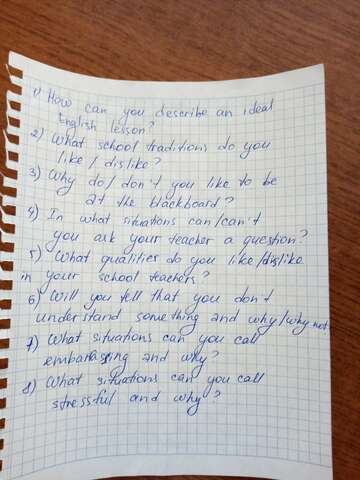 1) How can you describe an ideal
English lesson?
2) What school traditions do you
like / dislike?
3) Why do / don't you like to be
at the blackboard?
4) In what situations can/can't
you ask your teacher a question?
5) What qualities do you like/dislike
in your school teachers?
6) Will you tell that you don't
understand something and why/why not
7) What situations can you call
embarassing and why?
8) What situations can you call
stressful and why?